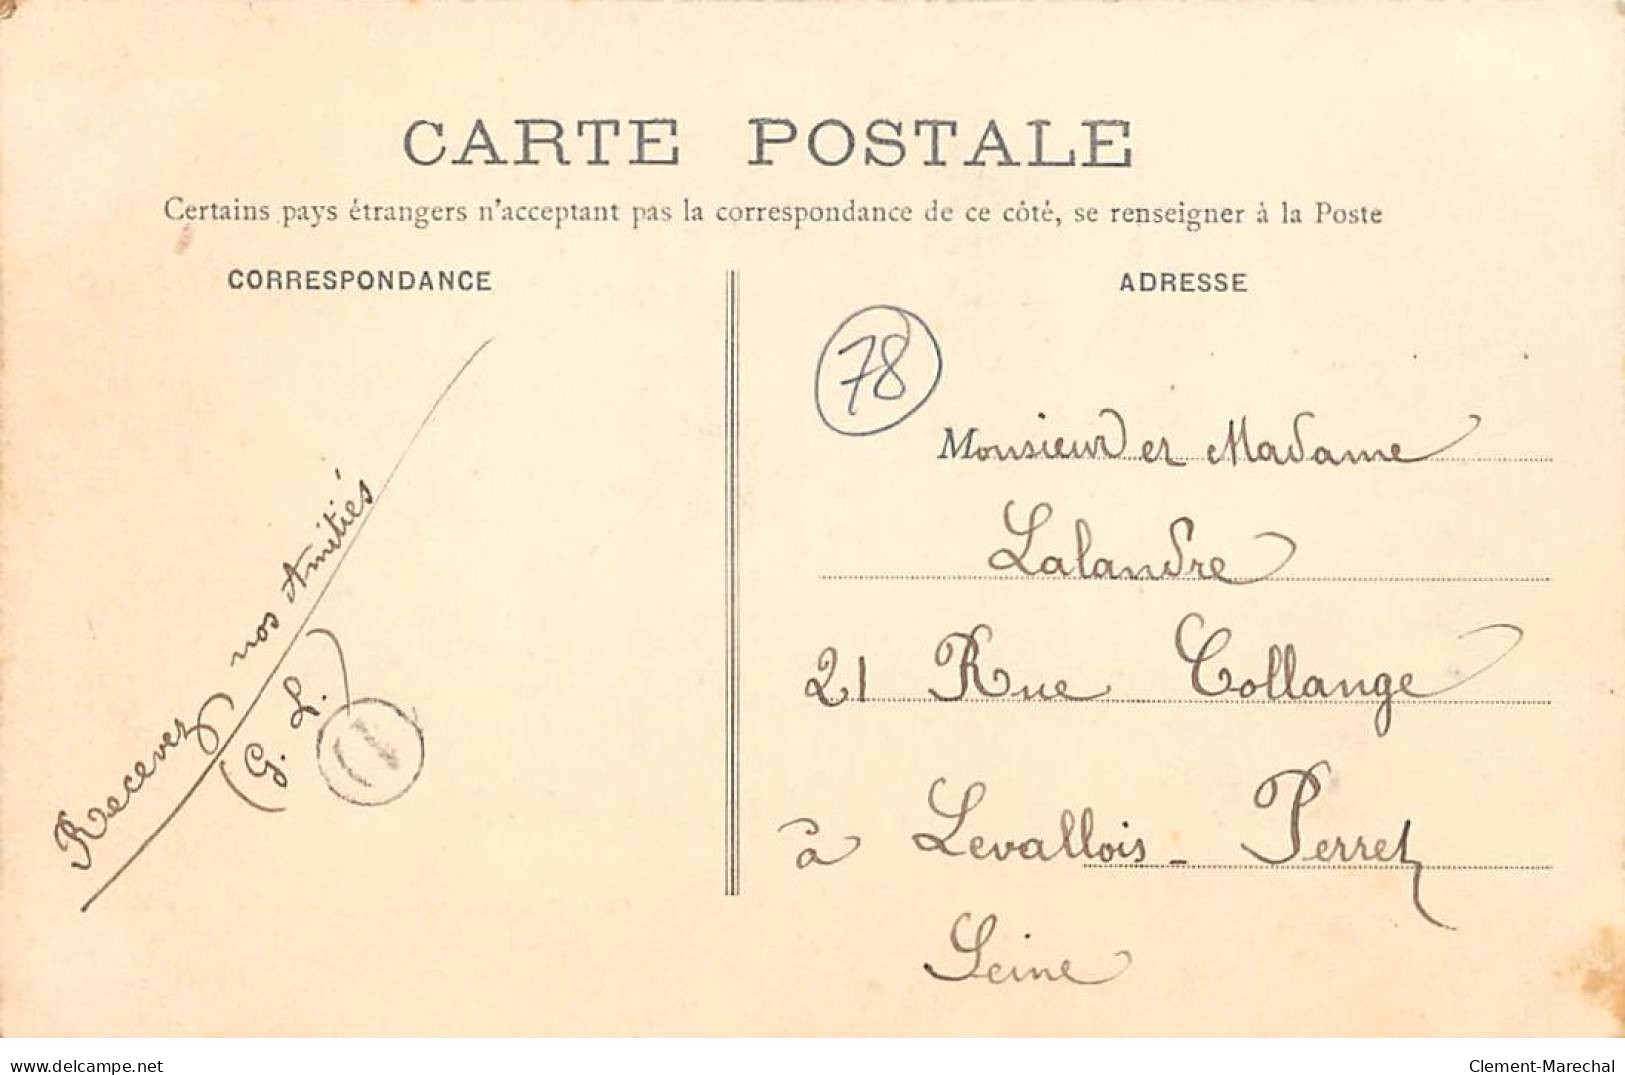 CARTE POSTALE
Certains pays étrangers n'acceptant pas la correspondance de ce côté, se renseigner à la Poste
CORRESPONDANCE
Recevez nos Amitiés
(G. L.)
ADRESSE
78
Monsieur et Madame
Lalandre
21 Rue Collange
à Levallois-Perret
Seine
www.delcampe.net
Clement-Marechal